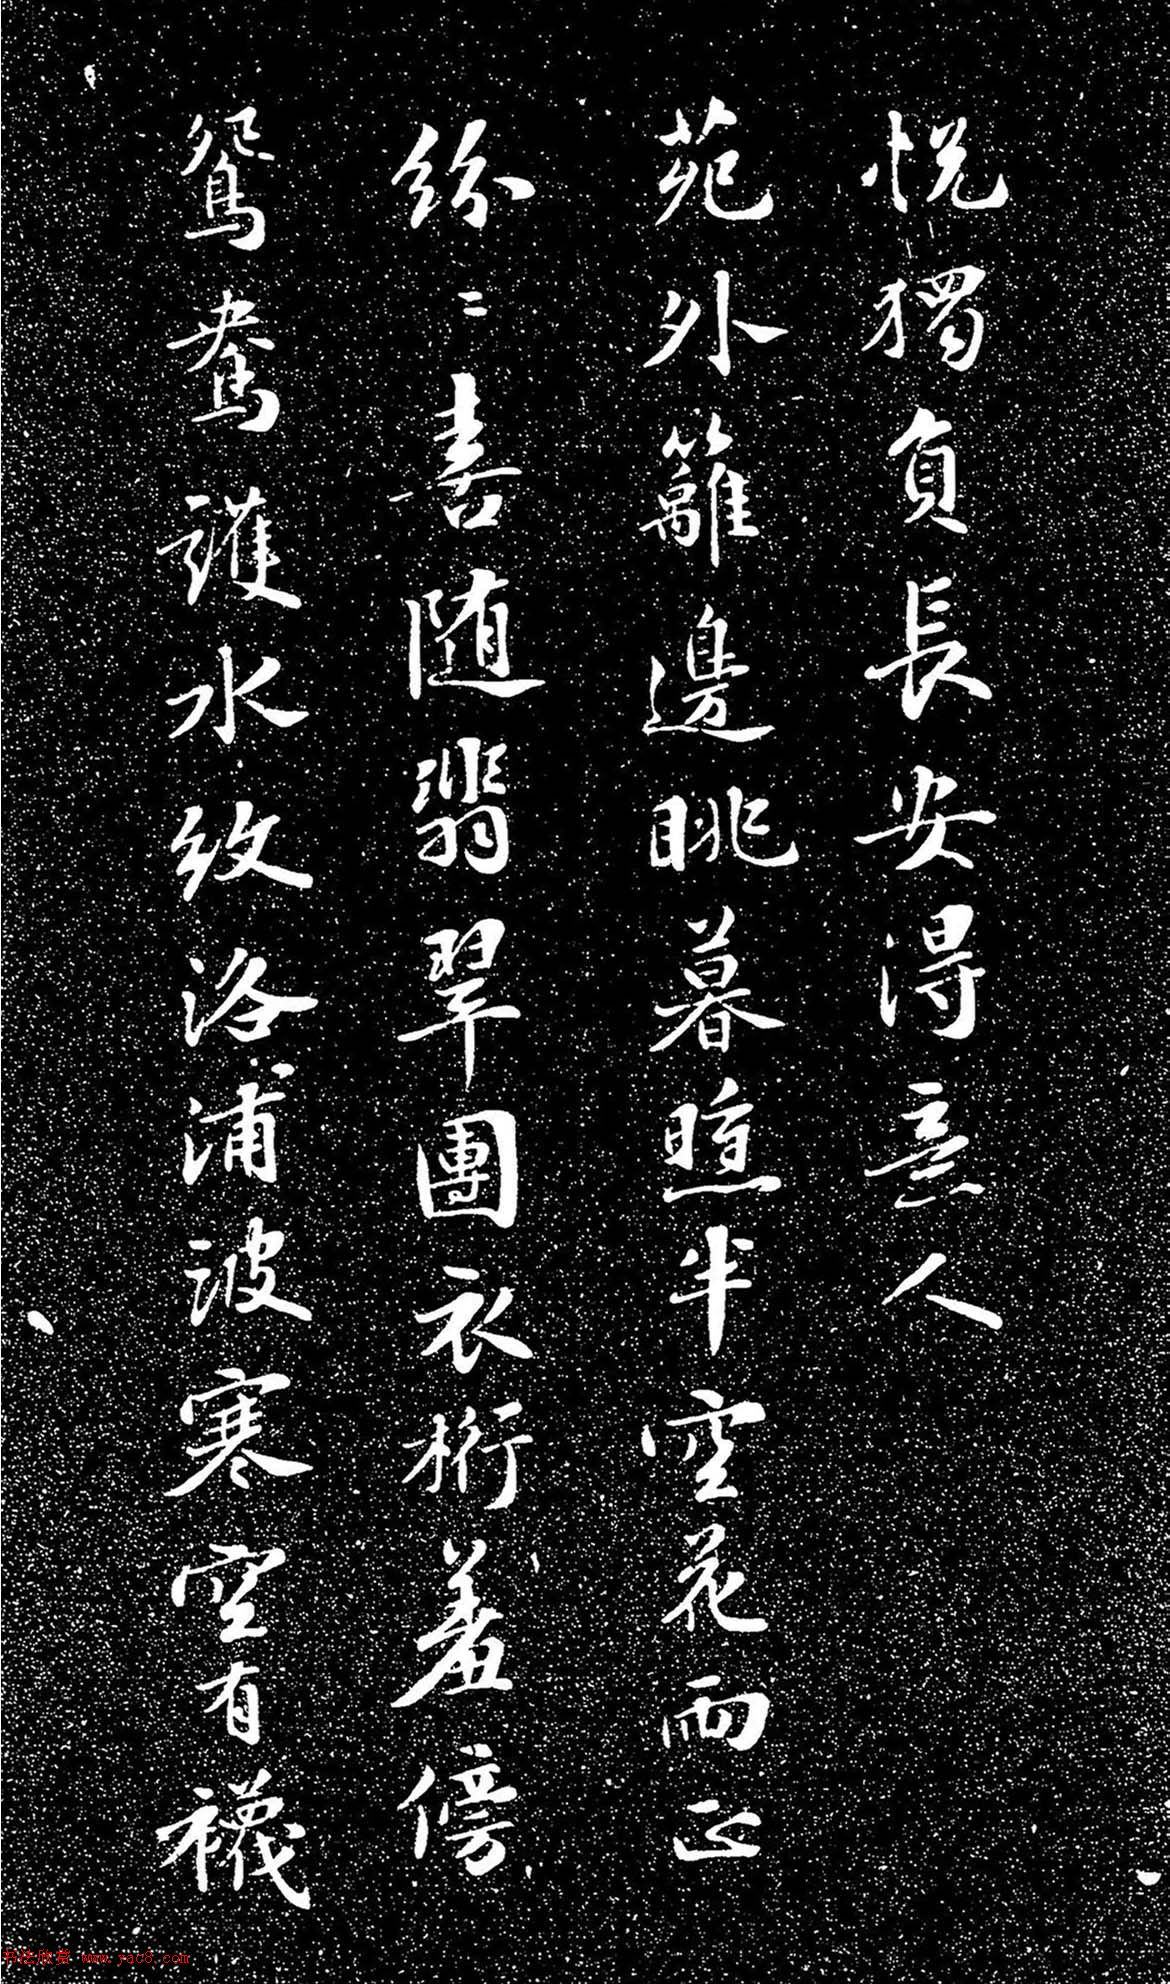 悦獨負長安得意人
苑外籬邊眺暮煙半空花雨正
紛〻喜随翡翠團衣桁羞傍
鴛鴦護水紋洛浦波寒空有襪
书法欣赏 www.yac8.com